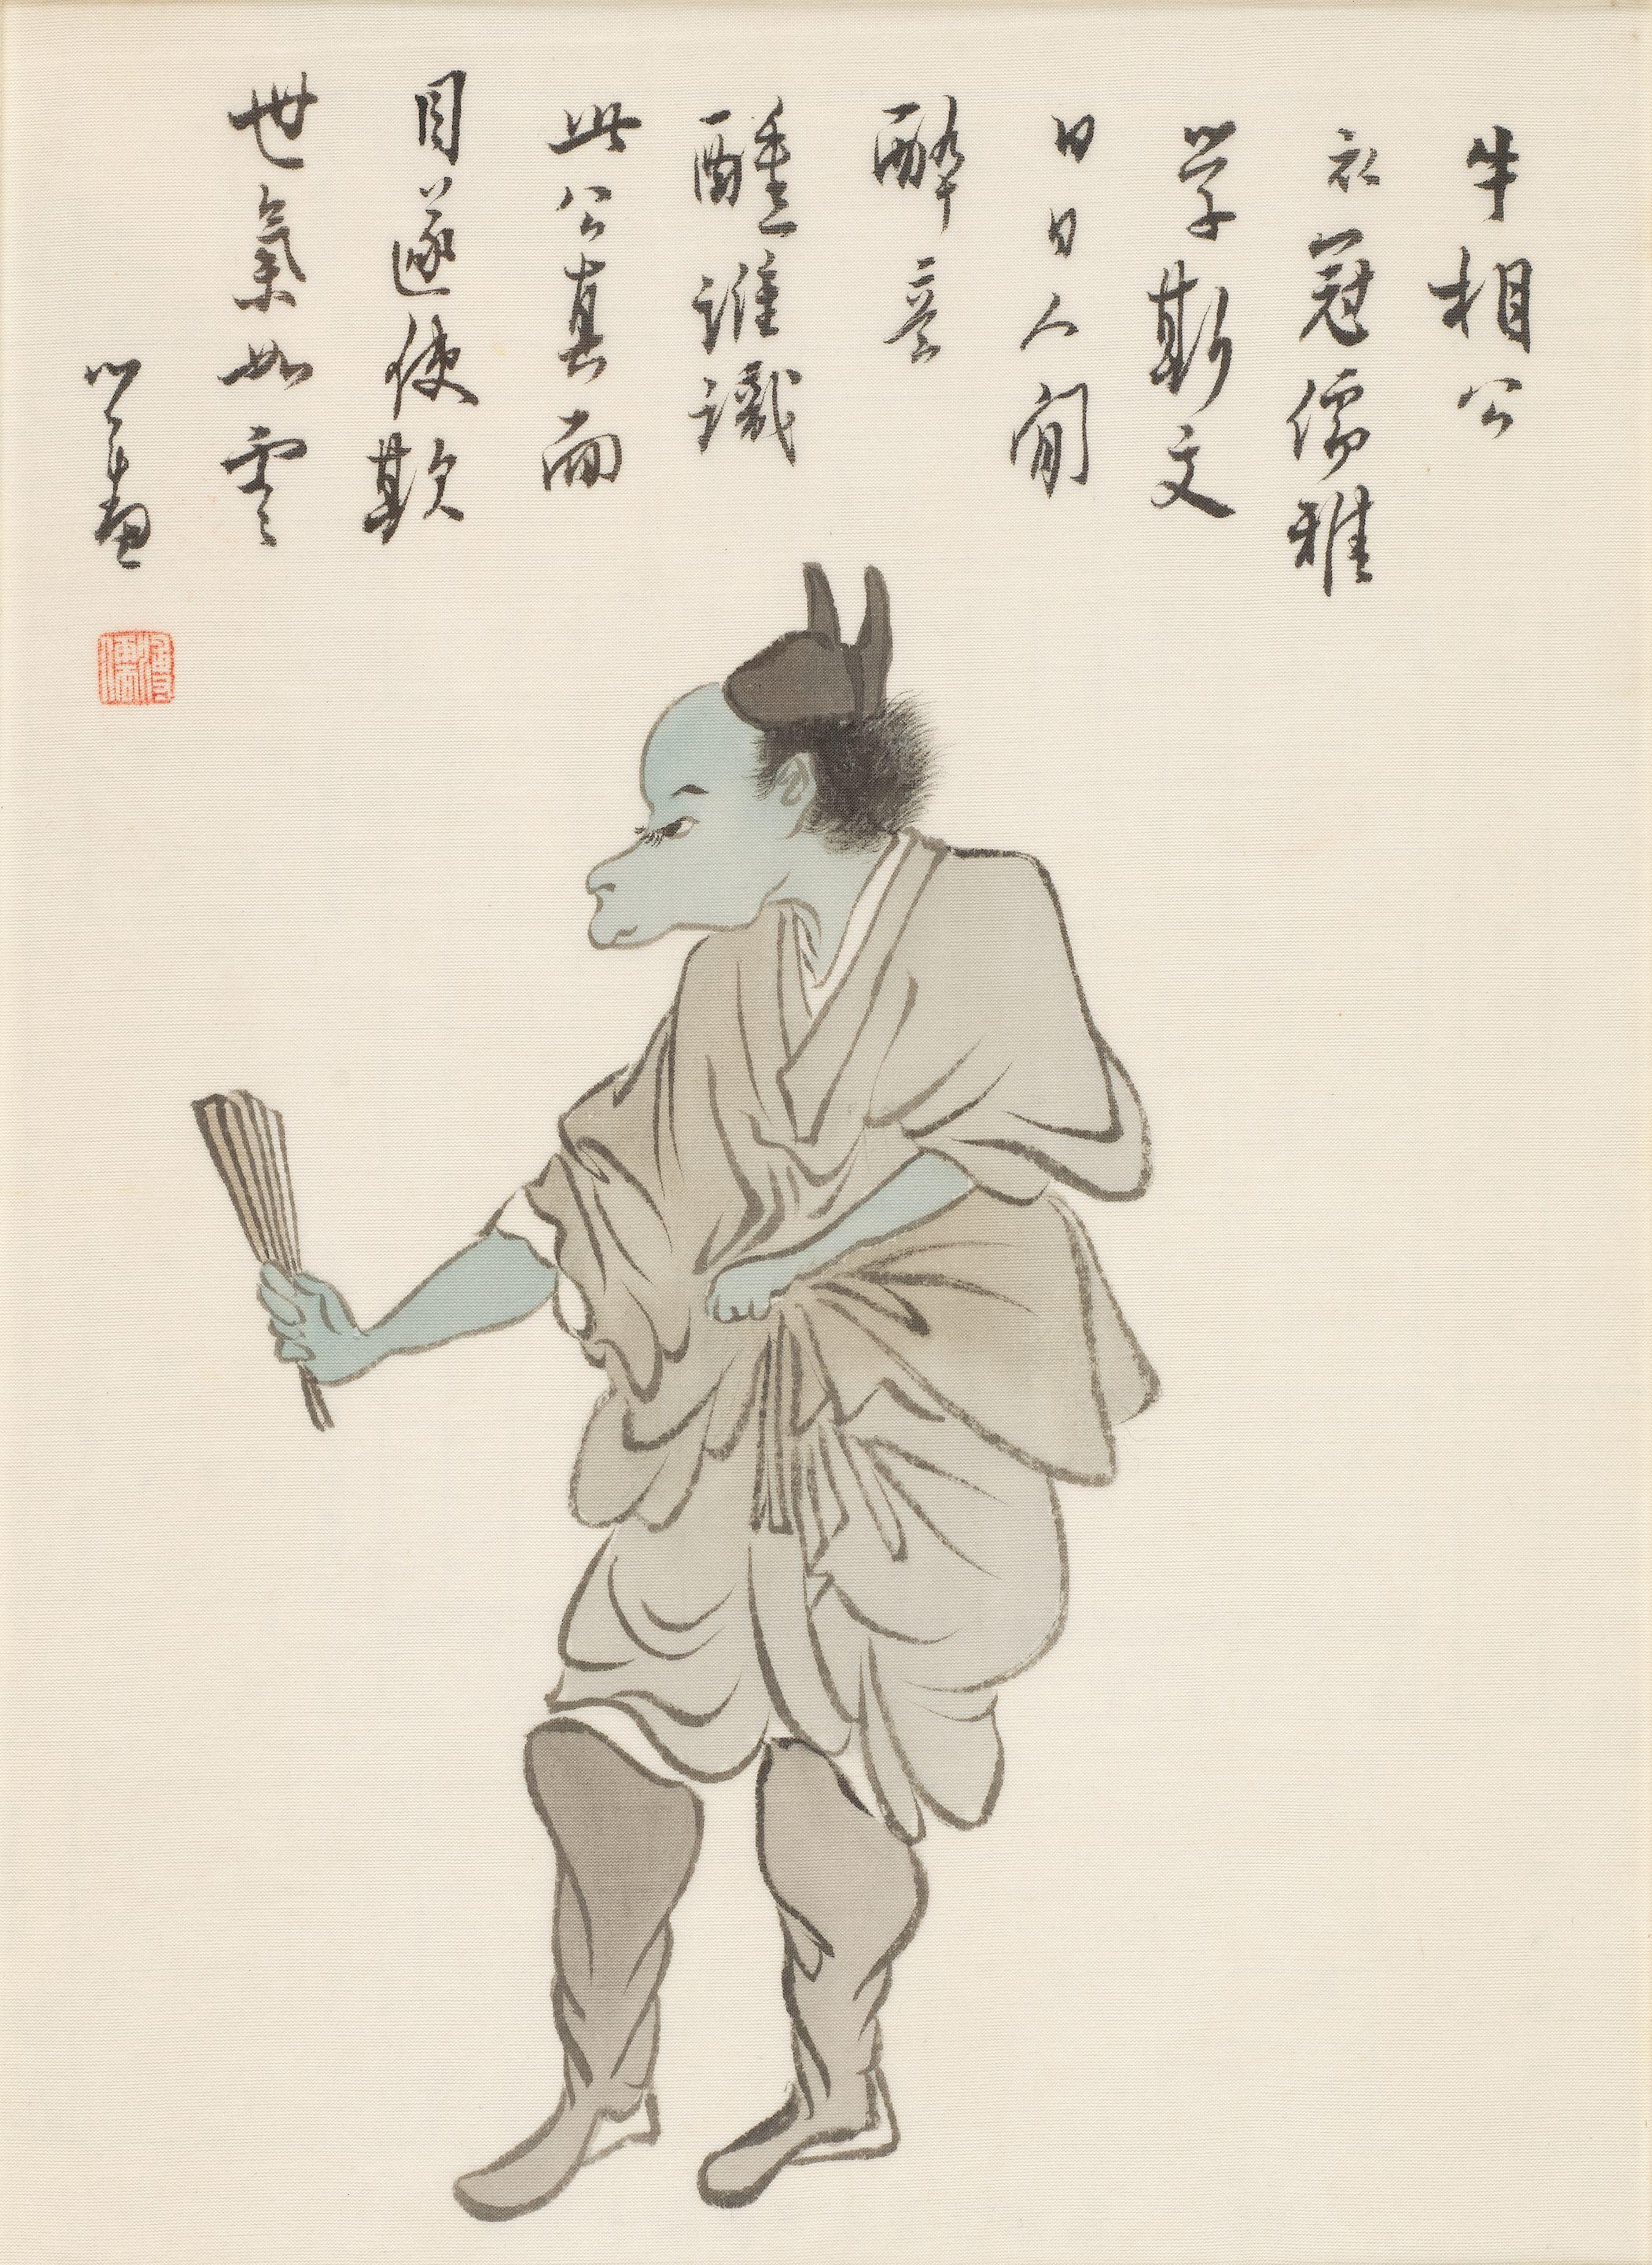 牛相公
衣冠儒雅
学斯文
日日人間
醉意
醺誰識
此公真面
目遂使欺
世氣如雲
心畬
溥儒